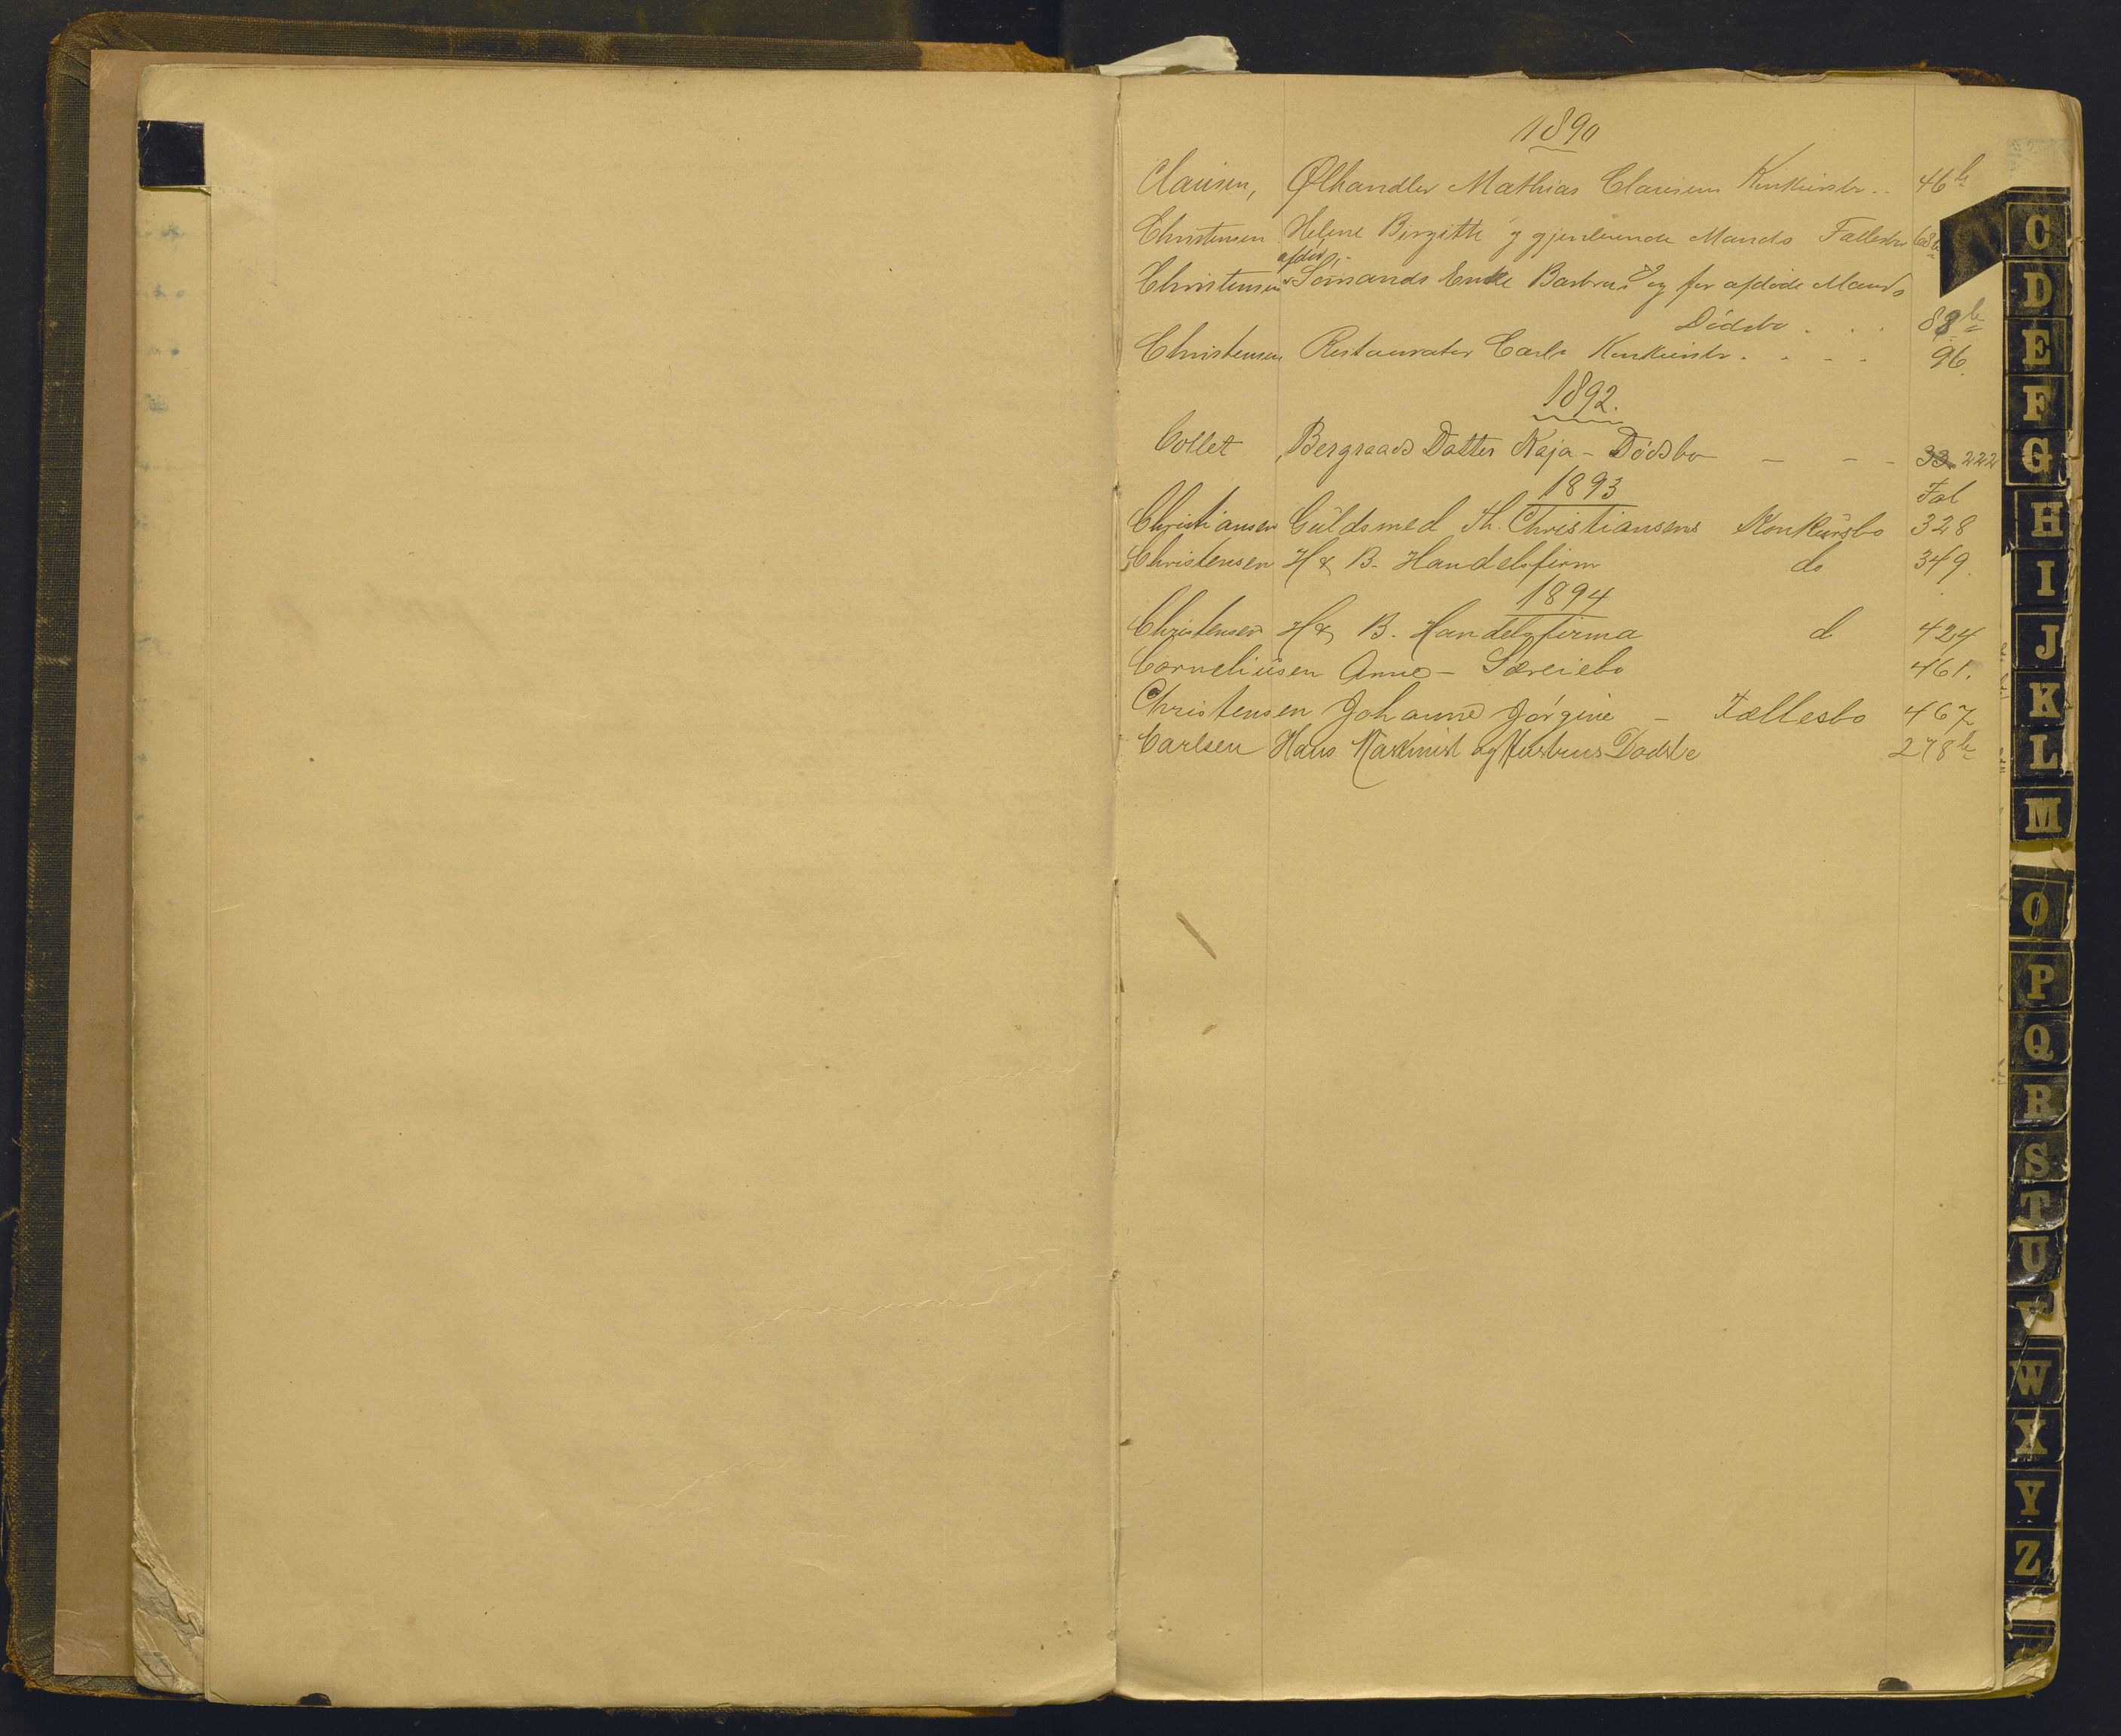 1890
Clausen, Ølhandler Mathias Clausens Konkursbo .. 46b
Christensen Helene Birgitte og gjenlevende Mands Fællesbo 68b
afdød
Christensen Sömands Enke Barbra og før afdöde Mands
Dödsbo . . . 88b
Christensen Restauratør Carls Konkursbo . . . . 96.
1892.
Collet, Bergraads Datter Kaja - Dödsbo - - - 33 222
1893 Fol
Christiansen Guldsmed Th. Christiansens Konkursbo 328
Christensen H & B. Handelsfirm do 349.
1894
Christensen H & B. Handelsfirma d 424
Corneliusen Anne - Særeiebo 461.
Christensen Johanne Jörgine - Fællesbo 467
Carlsen Hans Maskinist og Hustrues Dødsbo 278b
C
D
E
F
G
H
I
J
K
L
M
O
P
Q
R
S
T
U
V
W
X
Y
Z